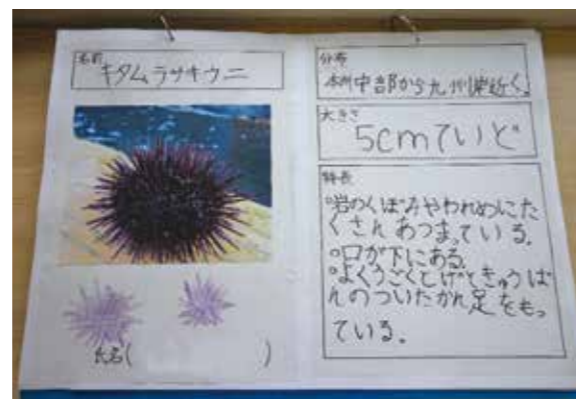 名前
キタムラサキウニ
氏名( )
分布
本州中部から九州岸近く。
大きさ
5cmていど
特長
°岩のくぼみやわれめにた
くさんあつまっている.
°口が下にある.
°よくうごくとげときゅうば
んのついたかん足をもっ
ている。